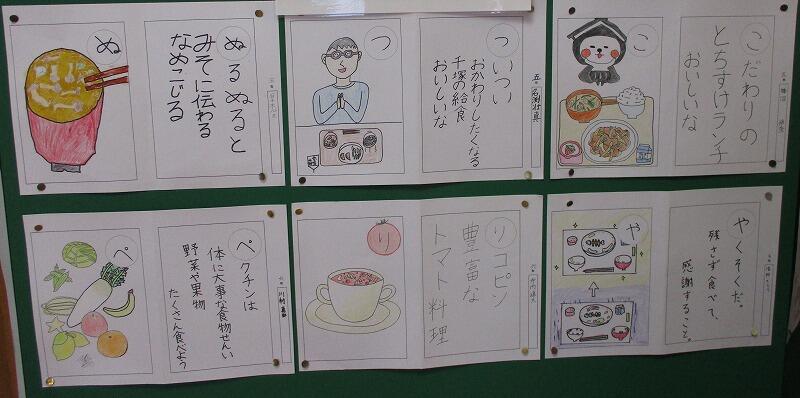 ぬ
ぬるぬると
みそに伝わる
なめこじる
つ
ついつい
おかわりしたくなる
千塚の給食
おいしいな
こ
こだわりの
とちすけランチ
おいしいな
ぺ
ペクチンは
体に大事な食物せんい
野菜や果物
たくさん食べよう
り
リコピン
豊富な
トマト料理
や
やくそくだ。
残さず食べて、
感謝すること。